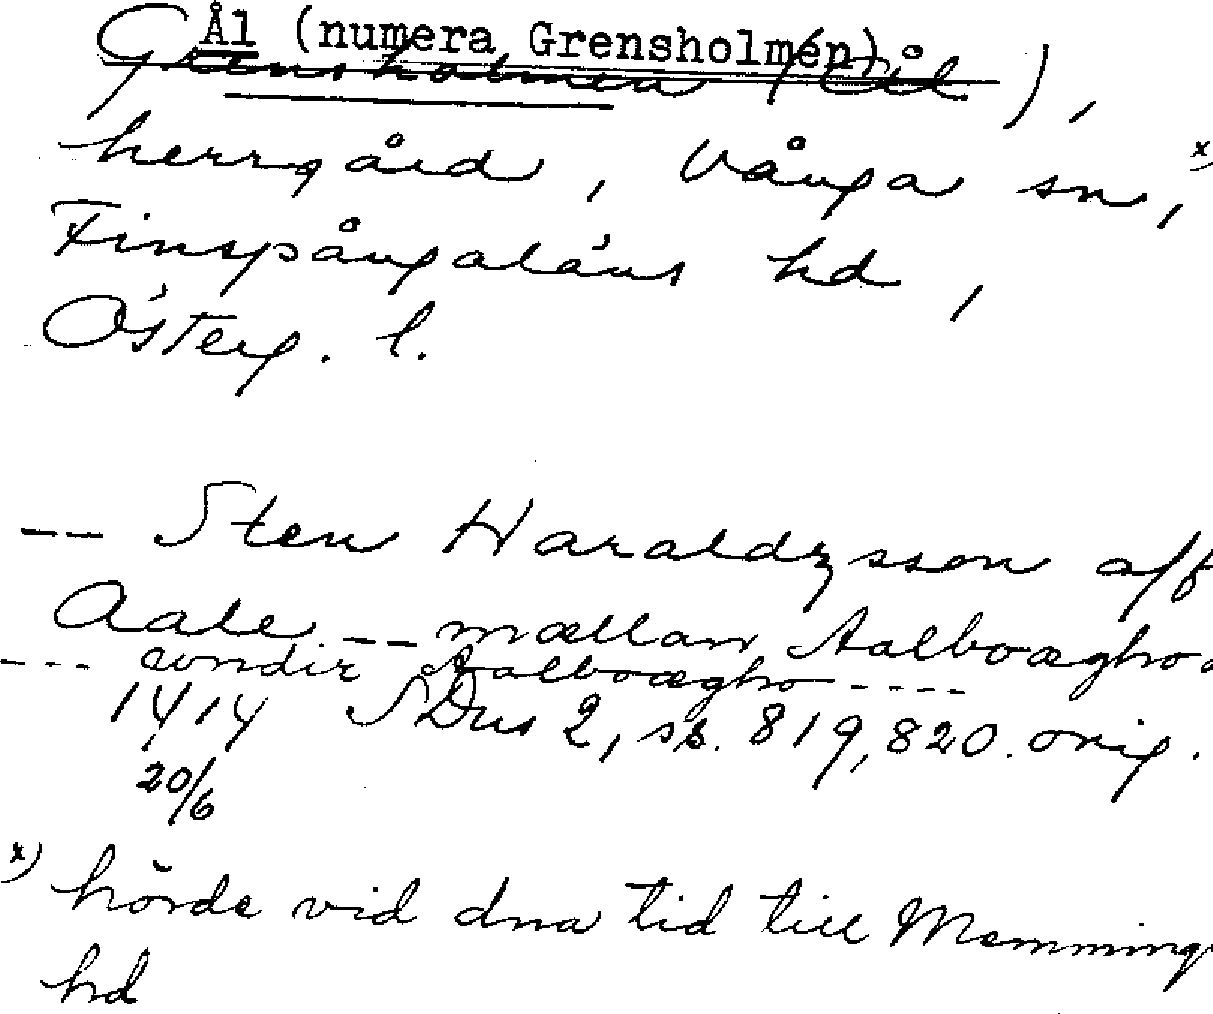 Ål (numera Grensholmen)
Grensholmen (Ål),
herrgård, Vånga sn, x)
Finspångaläns hd,
Österg. l.
-- Sten Haraldzsson aff
Aale -- mællan Aalboægho
--- wndir Aalboægho ----
1414 SDns 2, s. 819, 820. orig.
20/6
x) hörde vid dna tid till Memming
hd